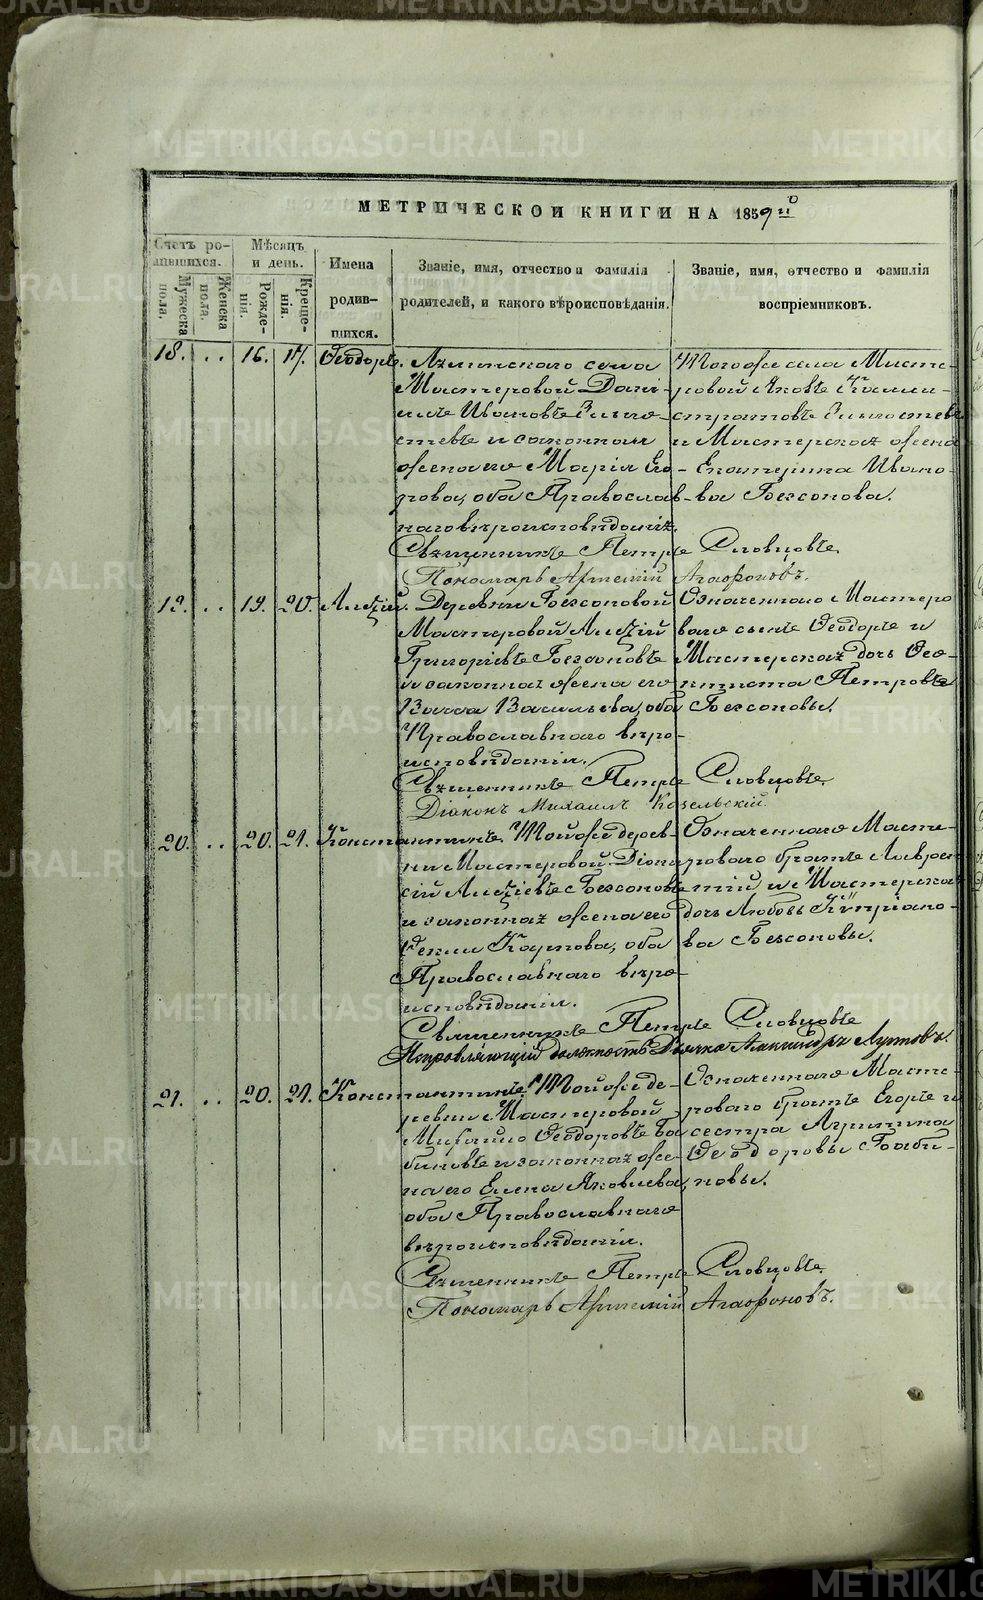 МЕТРИЧЕСКОЙ КНИГИ НА 1859й
Счетъ ро-
дившихся.
Мѣсяцъ
и день.
Имена
родив-
шихся.
Званіе, имя, отчество и фамилія
родителей, и какого вѣроисповѣданія.
Званіе, имя, отчество и фамилія
воспріемниковъ.
Мужеска
пола.
Женска
пола.
Рожде-
нія.
Креще-
нія.
18. .. 16. 17. Ѳеодоръ.
села
Мастеровой Дані-
илъ Ивановъ
и законная
жена его Марія Его-
рова, оба Православ-
наго вѣроисповѣданія.
Тогоже села Масте-
ровой Яковъ Калли-
стратовъ
и Мастерская жена
Екатерина Ивано-
ва Безсонова.
Священникъ Петръ Словцовъ.
Пономарь Артемій Агафоновъ.
19. .. 19. 20. Алексій.
Деревни Безсоновой
Мастеровой Алексій
Григоріевъ Безсоновъ
и законная жена его
Васса Васильева, оба
Православнаго вѣро-
исповѣданія.
Означеннаго Мастеро
ваго сынъ Ѳеодоръ и
Мастерская дочь Ѳео-
ктиста Петровы
Безсоновы.
Священникъ Петръ Словцовъ.
Діаконъ Михаилъ Козельскій.
20. .. 20. 21. Константинъ.
Тойоже дерев-
ни Мастеровой Діони-
сій Алексіевъ Безсоновъ
и законная жена его
Ѳекла Карпова, оба
Православнаго вѣро-
исповѣданія.
Означеннаго Масте-
роваго братъ Лаврен-
тій и Мастерская
дочь Любовь Кипріано-
ва Безсоновы.
Священникъ Петръ Словцовъ
Исправляющій должность Дьячка Александръ
21. .. 20. 21. Константинъ.
Тойоже де-
ревни Мастеровой
Михаило Ѳеодоровъ Ба
биновъ и законная же-
на его Елена Яковлева,
оба Православнаго
вѣроисповѣданія.
Означеннаго Масте-
роваго братъ Егоръ и
сестра Агрипина
Ѳеодоровы Баби-
новы.
Священникъ Петръ Словцовъ.
Пономарь Артемій Агафоновъ.
METRIKI.GASO-URAL.RU